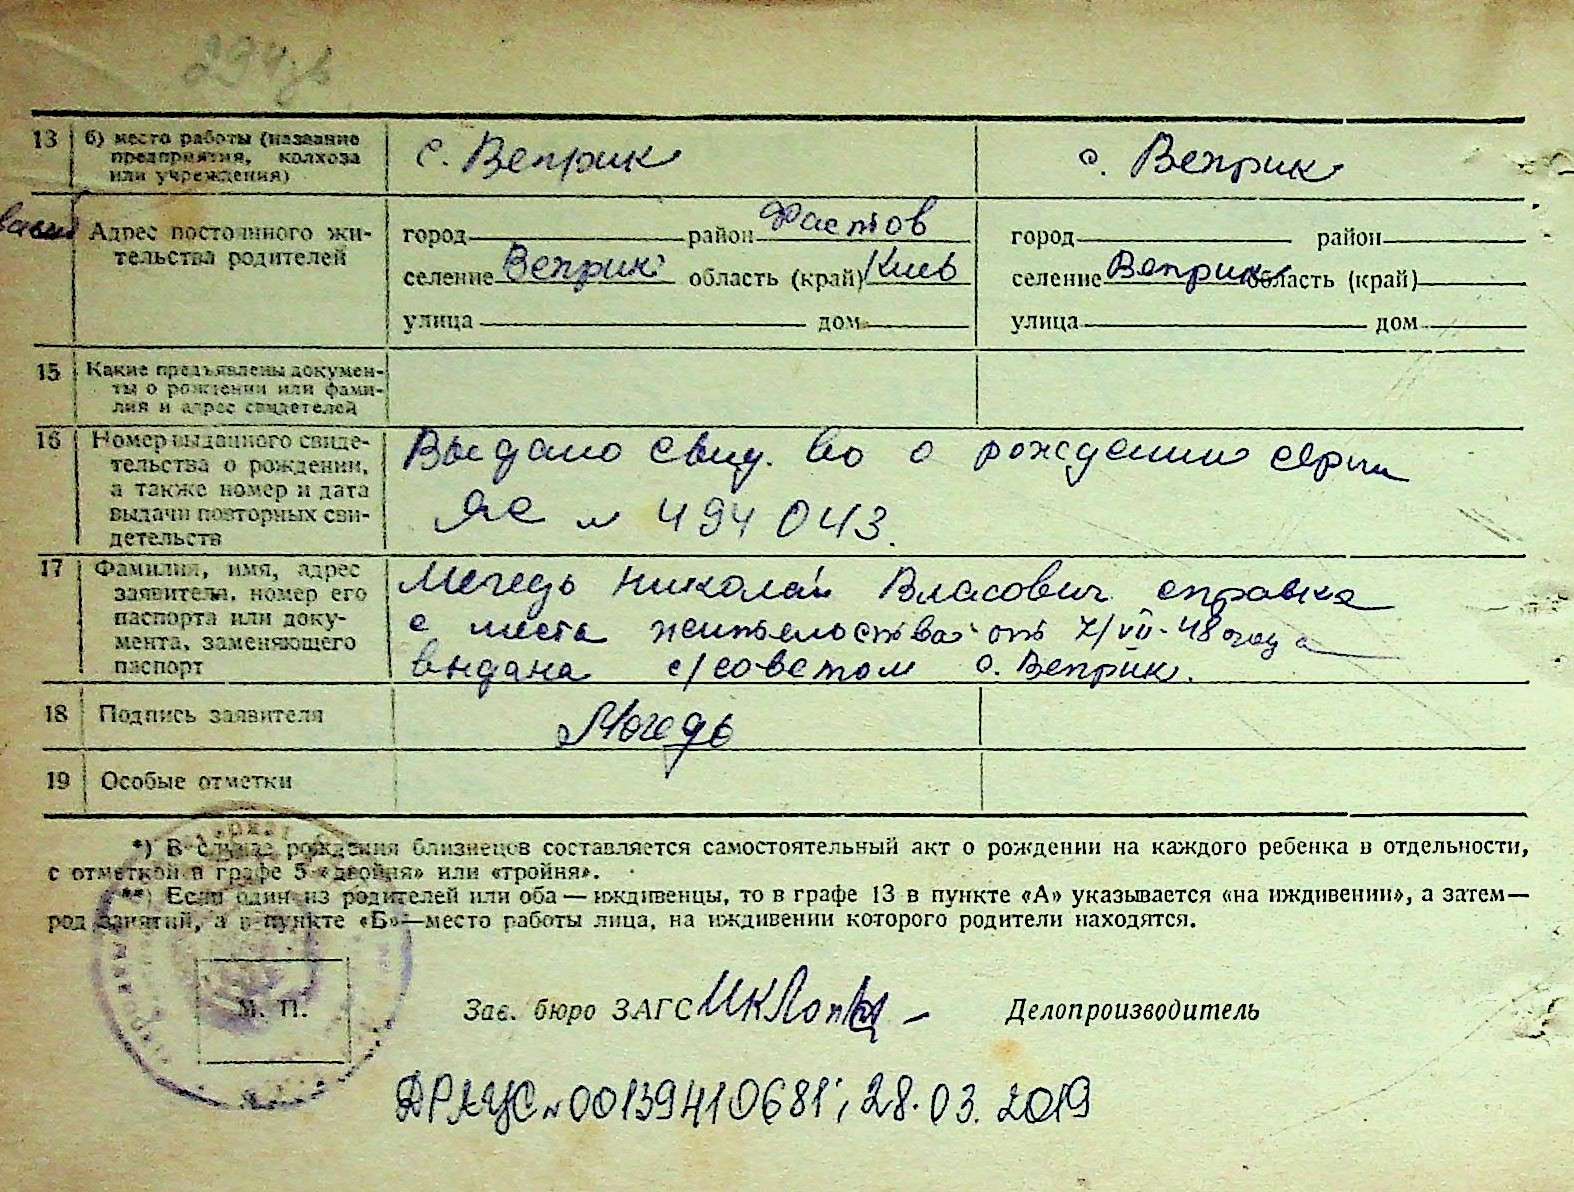 294
13 б) место работы (название предприятия, колхоза или учреждения) с. Веприк с. Веприк
Адрес постоянного жительства родителей
город район Фастов город район
селение Веприк область (край) Киев селение Веприк область (край)
улица дом улица дом
15 Какие предъявлены документы о рождении или фамилия и адрес свидетелей
16 Номер выданного свидетельства о рождении, а также номер и дата выдачи повторных свидетельств
Выдано свид. во о рождении серии
ЯС N 494043.
17 Фамилия, имя, адрес заявителя, номер его паспорта или документа, заменяющего паспорт
Мегедь Николай Власович справка
с места жительства от 7/VII-48 года
выдана с/советом с. Веприк.
18 Подпись заявителя Мегедь
19 Особые отметки
*) В случае рождения близнецов составляется самостоятельный акт о рождении на каждого ребенка в отдельности,
с отметкой в графе 5 «двойня» или «тройня».
**) Если один из родителей или оба — иждивенцы, то в графе 13 в пункте «А» указывается «на иждивении», а затем—
род занятий, а в пункте «Б»—место работы лица, на иждивении которого родители находятся.
М. П. Зав. бюро ЗАГС Делопроизводитель
ДРАЦС N 00139410681; 28.03.2019